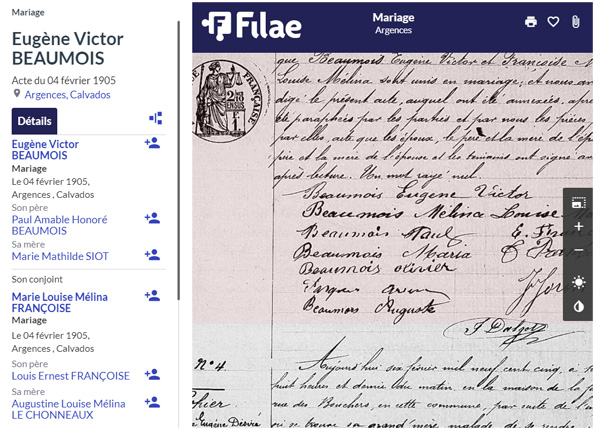 Mariage
Eugène Victor
BEAUMOIS
Acte du 04 février 1905
Argences, Calvados
Détails
Eugène Victor
BEAUMOIS
Mariage
Le 04 février 1905,
Argences , Calvados
Son père
Paul Amable Honoré
BEAUMOIS
Sa mère
Marie Mathilde SIOT
Son conjoint
Marie Louise Mélina
FRANÇOISE
Mariage
Le 04 février 1905,
Argences , Calvados
Son père
Louis Ernest FRANÇOISE
Sa mère
Augustine Louise Mélina
LE CHONNEAUX
Filae
Mariage
Argences
que Beaumois Eugène Victor et Françoise M
Louise Mélina sont unis en mariage; et nous av
digé le présent acte, auquel ont été annexés, apre
été paraphées par les parties et par nous les pièces
par elles, acte que les époux, le père et la mère de l'ép
père et la mère de l'épouse et les témoins ont signé a
après lecture. Un mot rayé nul.
FRANÇAISE
Beaumois Eugène Victor
Beaumois Mélina Louise
Beaumois Paul
Beaumois Maria
Beaumois olivier
Beaumois Auguste
N° 4.
Aujourd'hui six février mil neuf cent cinq, à
huit heures et demie du matin, en la maison de la
rue des Bouchers, en cette commune, par suite de l'
où se trouve sa grand'mère malade de se rendre
Eugène Désiré